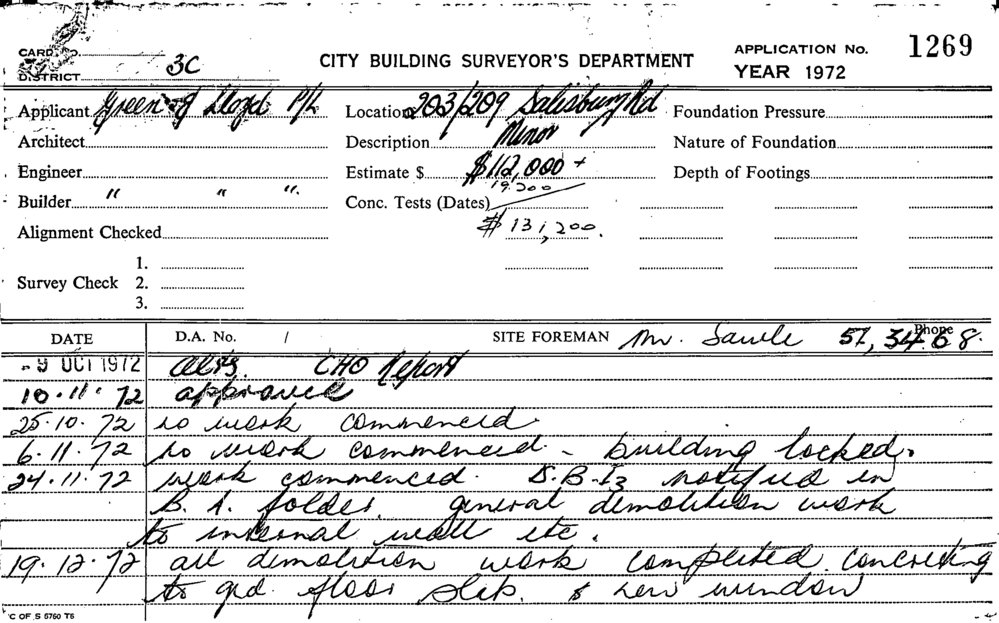 CARD No.
DISTRICT 3C
CITY BUILDING SURVEYOR'S DEPARTMENT
APPLICATION No. 1269
YEAR 1972
Applicant Green & Lloyd P/L
Location 203/209 Salisbury Rd
Foundation Pressure
Architect
Description Minor
Nature of Foundation
Engineer
Estimate $ $112,000 +
19,200
Depth of Footings
Builder " " "
Conc. Tests (Dates)
$ 131,200.
Alignment Checked
Survey Check 1.
2.
3.
DATE D.A. No. / SITE FOREMAN Mr. Sawle Phone 51,3468.
- 9 OCT 1972 Alts. CHO Report
10.11.72 approved
25.10.72 no work commenced.
6.11.72 no work commenced - building locked.
24.11.72 work commenced. notified in
B. A. folder. general demolition work
to internal wall etc.
19.12.72 all demolition work completed concreting
to grd. floor slab. & new window
C OF S 5760 T5